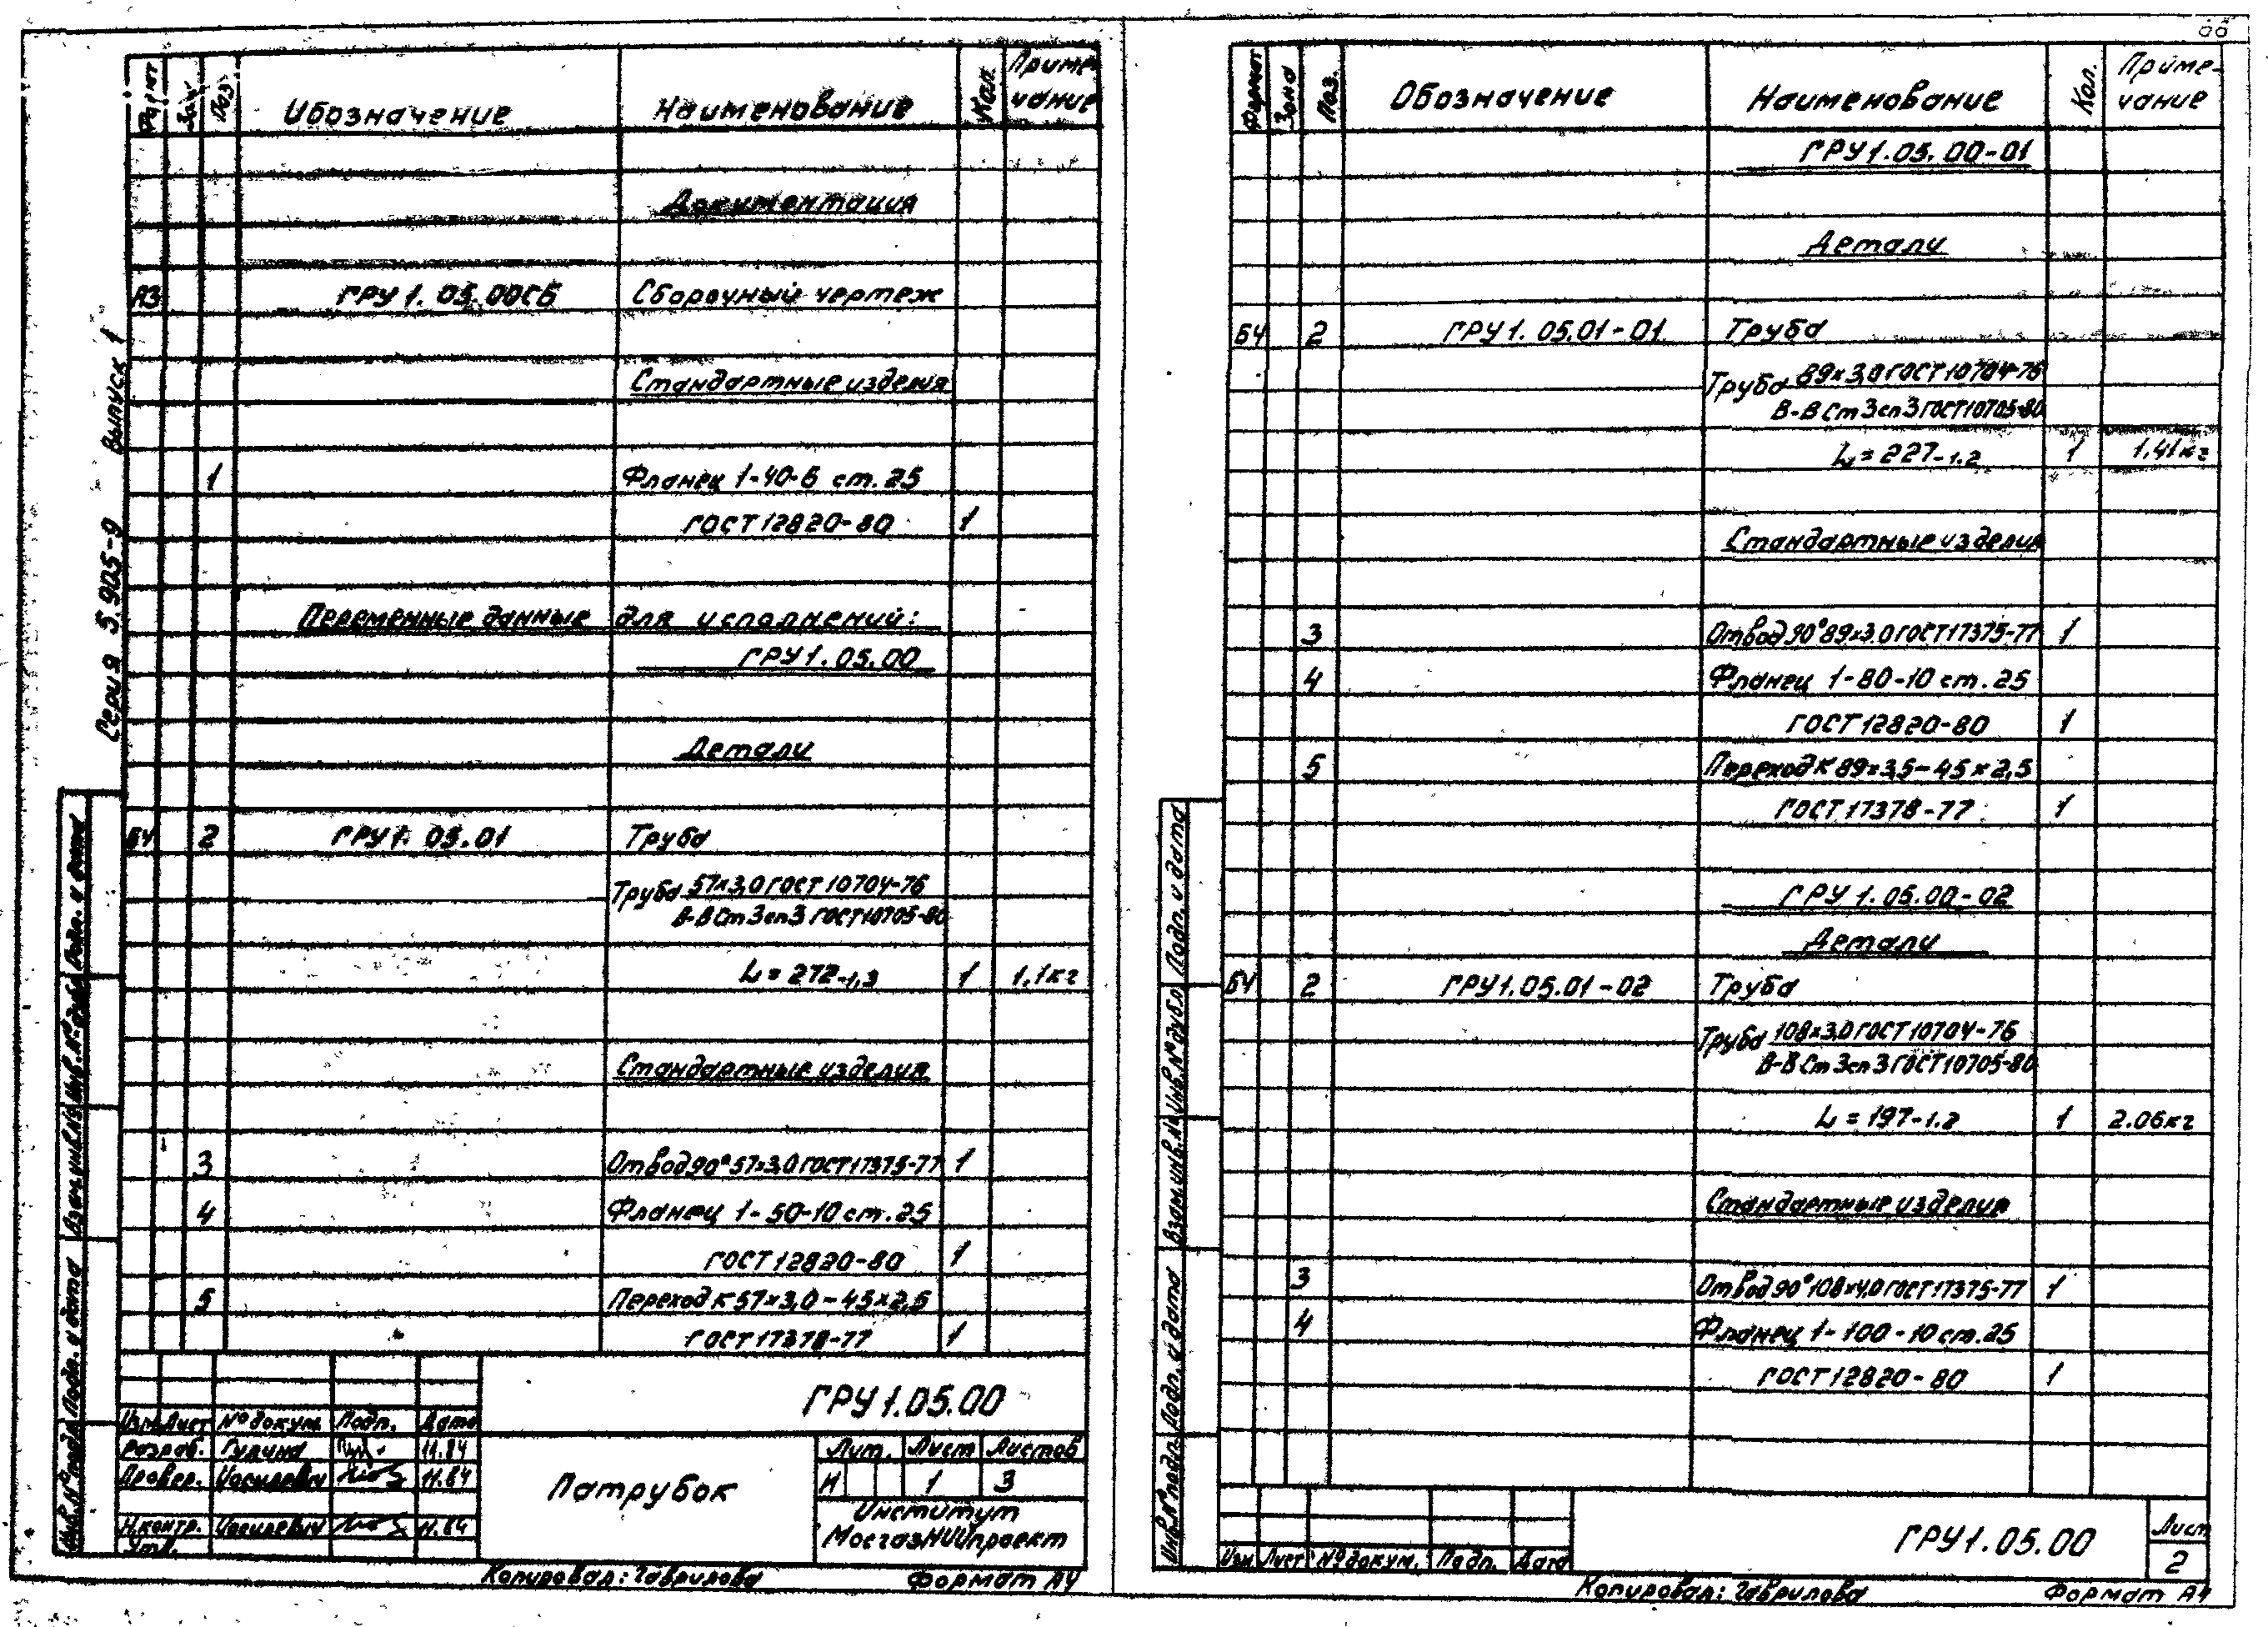 Формат Зона Поз. Обозначение Наименование Кол. Приме-
чание
Документация
А3 ГРУ 1.05.00СБ Сборочный чертеж
Стандартные изделия
1 Фланец 1-40-6 ст.25
ГОСТ 12820-80 1
Переменные данные для исполнений:
ГРУ 1.05.00
Детали
БЧ 2 ГРУ 1.05.01 Труба
Труба 57×3,0 ГОСТ 10704-76
В-В Ст 3сп3 ГОСТ 10705-80
L = 272-1,3 1 1,1кг
Стандартные изделия
3 Отвод 90° 57×3,0 ГОСТ 17375-77 1
4 Фланец 1-50-10 ст.25
ГОСТ 12820-80 1
5 Переход К 57×3,0-45×2,5
ГОСТ 17378-77 1
Серия 5.905-9 Выпуск 1
Инв.№ подл. Подп. и дата Взам.инв.№ Инв.№ дубл. Подп. и дата
ГРУ 1.05.00
Изм. Лист № докум. Подп. Дата
Разраб. 11.84
Провер. 11.84
Н.контр. 11.84
Утв.
Патрубок
Лит. Лист Листов
И 1 3
Институт
МосгазНИИпроект
Копировал: Гаврилова Формат А4
Формат Зона Поз. Обозначение Наименование Кол. Приме-
чание
ГРУ 1.05.00-01
Детали
БЧ 2 ГРУ 1.05.01-01 Труба
Труба 89×3,0 ГОСТ 10704-76
В-В Ст 3сп3 ГОСТ 10705-80
L = 227-1.2 1 1,41кг
Стандартные изделия
3 Отвод 90° 89×3,0 ГОСТ 17375-77 1
4 Фланец 1-80-10 ст.25
ГОСТ 12820-80 1
5 Переход К 89×3,5-45×2,5
ГОСТ 17378-77 1
ГРУ 1.05.00-02
Детали
БЧ 2 ГРУ 1.05.01-02 Труба
Труба 108×3,0 ГОСТ 10704-76
В-В Ст 3сп3 ГОСТ 10705-80
L = 197-1.2 1 2.06кг
Стандартные изделия
3 Отвод 90° 108×4,0 ГОСТ 17375-77 1
4 Фланец 1-100-10 ст.25
ГОСТ 12820-80 1
Инв.№ подл. Подп. и дата Взам.инв.№ Инв.№ дубл. Подп. и дата
Изм Лист № докум. Подп. Дата
ГРУ 1.05.00
Лист
2
Копировал: Гаврилова Формат А4